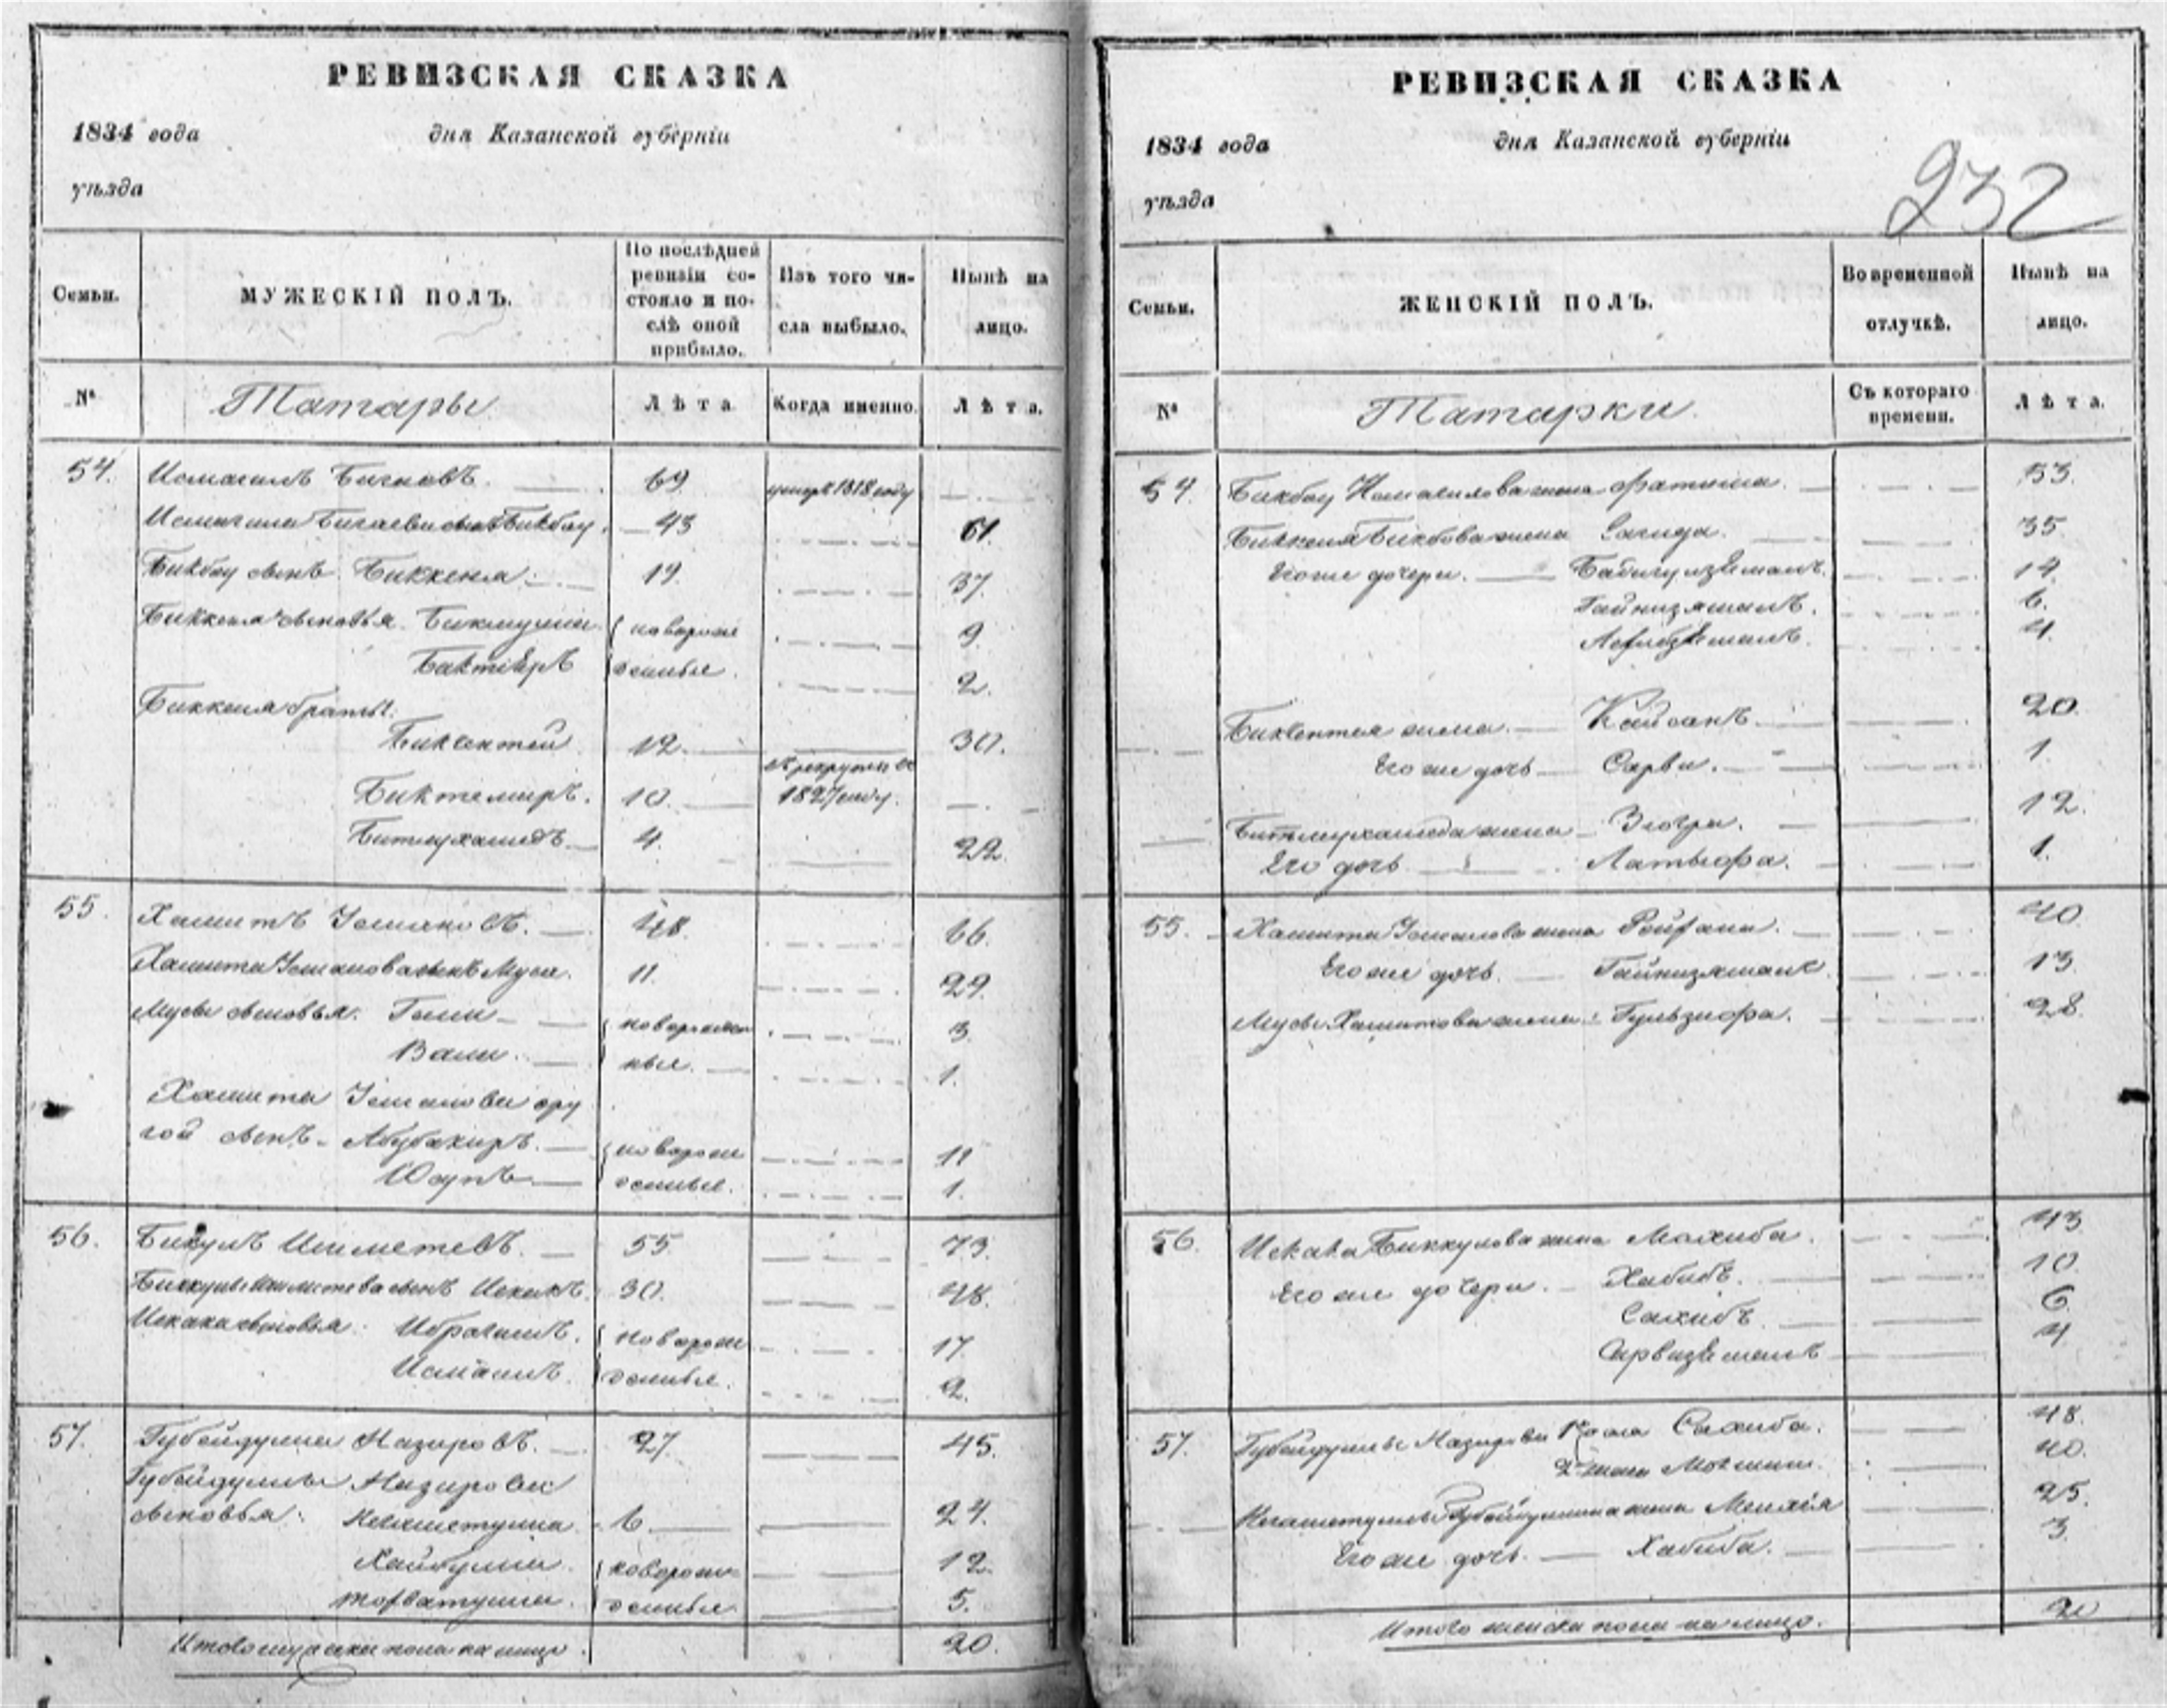 РЕВИЗСКАЯ СКАЗКА
1834 года дня Казанской губерніи
уѣзда
Семьи. МУЖЕСКІЙ ПОЛЪ. По послѣдней ревизіи состояло и послѣ оной прибыло. Изъ того числа выбыло. Нынѣ на лицо.
№ Татары Лѣта Когда именно. Лѣта.
54. Исмагилъ Бигаевъ. 69 умеръ 1818 году
Исмагила Бигаева сынъ Бикбау. 43 61.
Бикбау сынъ Биккеня. 19. 37.
Биккеня сыновья Бикмулла новорож 9.
Бактіяръ денные. 2.
Биккеня братья.
Биккентей 12. 30.
въ рекруты въ
Биктемиръ. 10. 1827 году.
Битмухаметъ. 4. 22.
55. Хамитъ Усмановъ. 48. 66.
Хамита Усманова сынъ Муса. 11. 29.
Мусы сыновья. Гали новорожден 3
Вали. ные. 1.
Хамита Усманова дру
гой сынъ Абубакиръ. новорож 11
Юсупъ денные. 1.
56. Бикулъ Ишметевъ. 55 73.
Биккула Ишметева сынъ Искакъ. 30. 48.
Искака сыновья. Ибрагимъ. новорож 17.
Исмаилъ. денные. 2.
57. Губейдулла Назировъ. 27. 45.
Губейдуллы Назирова
сыновья. 6. 24.
Хайбулла новорож 12.
денные. 5.
Итого мужска пола на лицо. 20.
РЕВИЗСКАЯ СКАЗКА
232
1834 года дня Казанской губерніи
уѣзда
Семьи. ЖЕНСКІЙ ПОЛЪ. Во временной отлучкѣ. Нынѣ на лицо.
№ Татарки Съ котораго времени. Лѣта.
54. Бикбау Исмагилова жена Фатима. 53.
Биккеня Бикбова жена Сагида. 35.
Его же дочери. 14.
Гайнизямалъ. 6.
4.
жена 20.
Его же дочь Сарви. 1.
Битмухамеда жена Зюгра. 12.
Его дочь Латыфа. 1.
55. Хамита Усманова жена 40.
Его же дочь. Гайнизямалъ. 13.
Мусы Хамитова жена Гульзифа. 28.
56. Искака Биккулова жена 43
Его же дочери. Хабибъ. 10.
Сахибъ. 6.
4
57. Губейдуллы Назирова 1я жена Сахиба. 48.
2я жена 40.
жена 25.
Его же дочь. Хабиба. 3.
Итого женска пола на лицо. 20